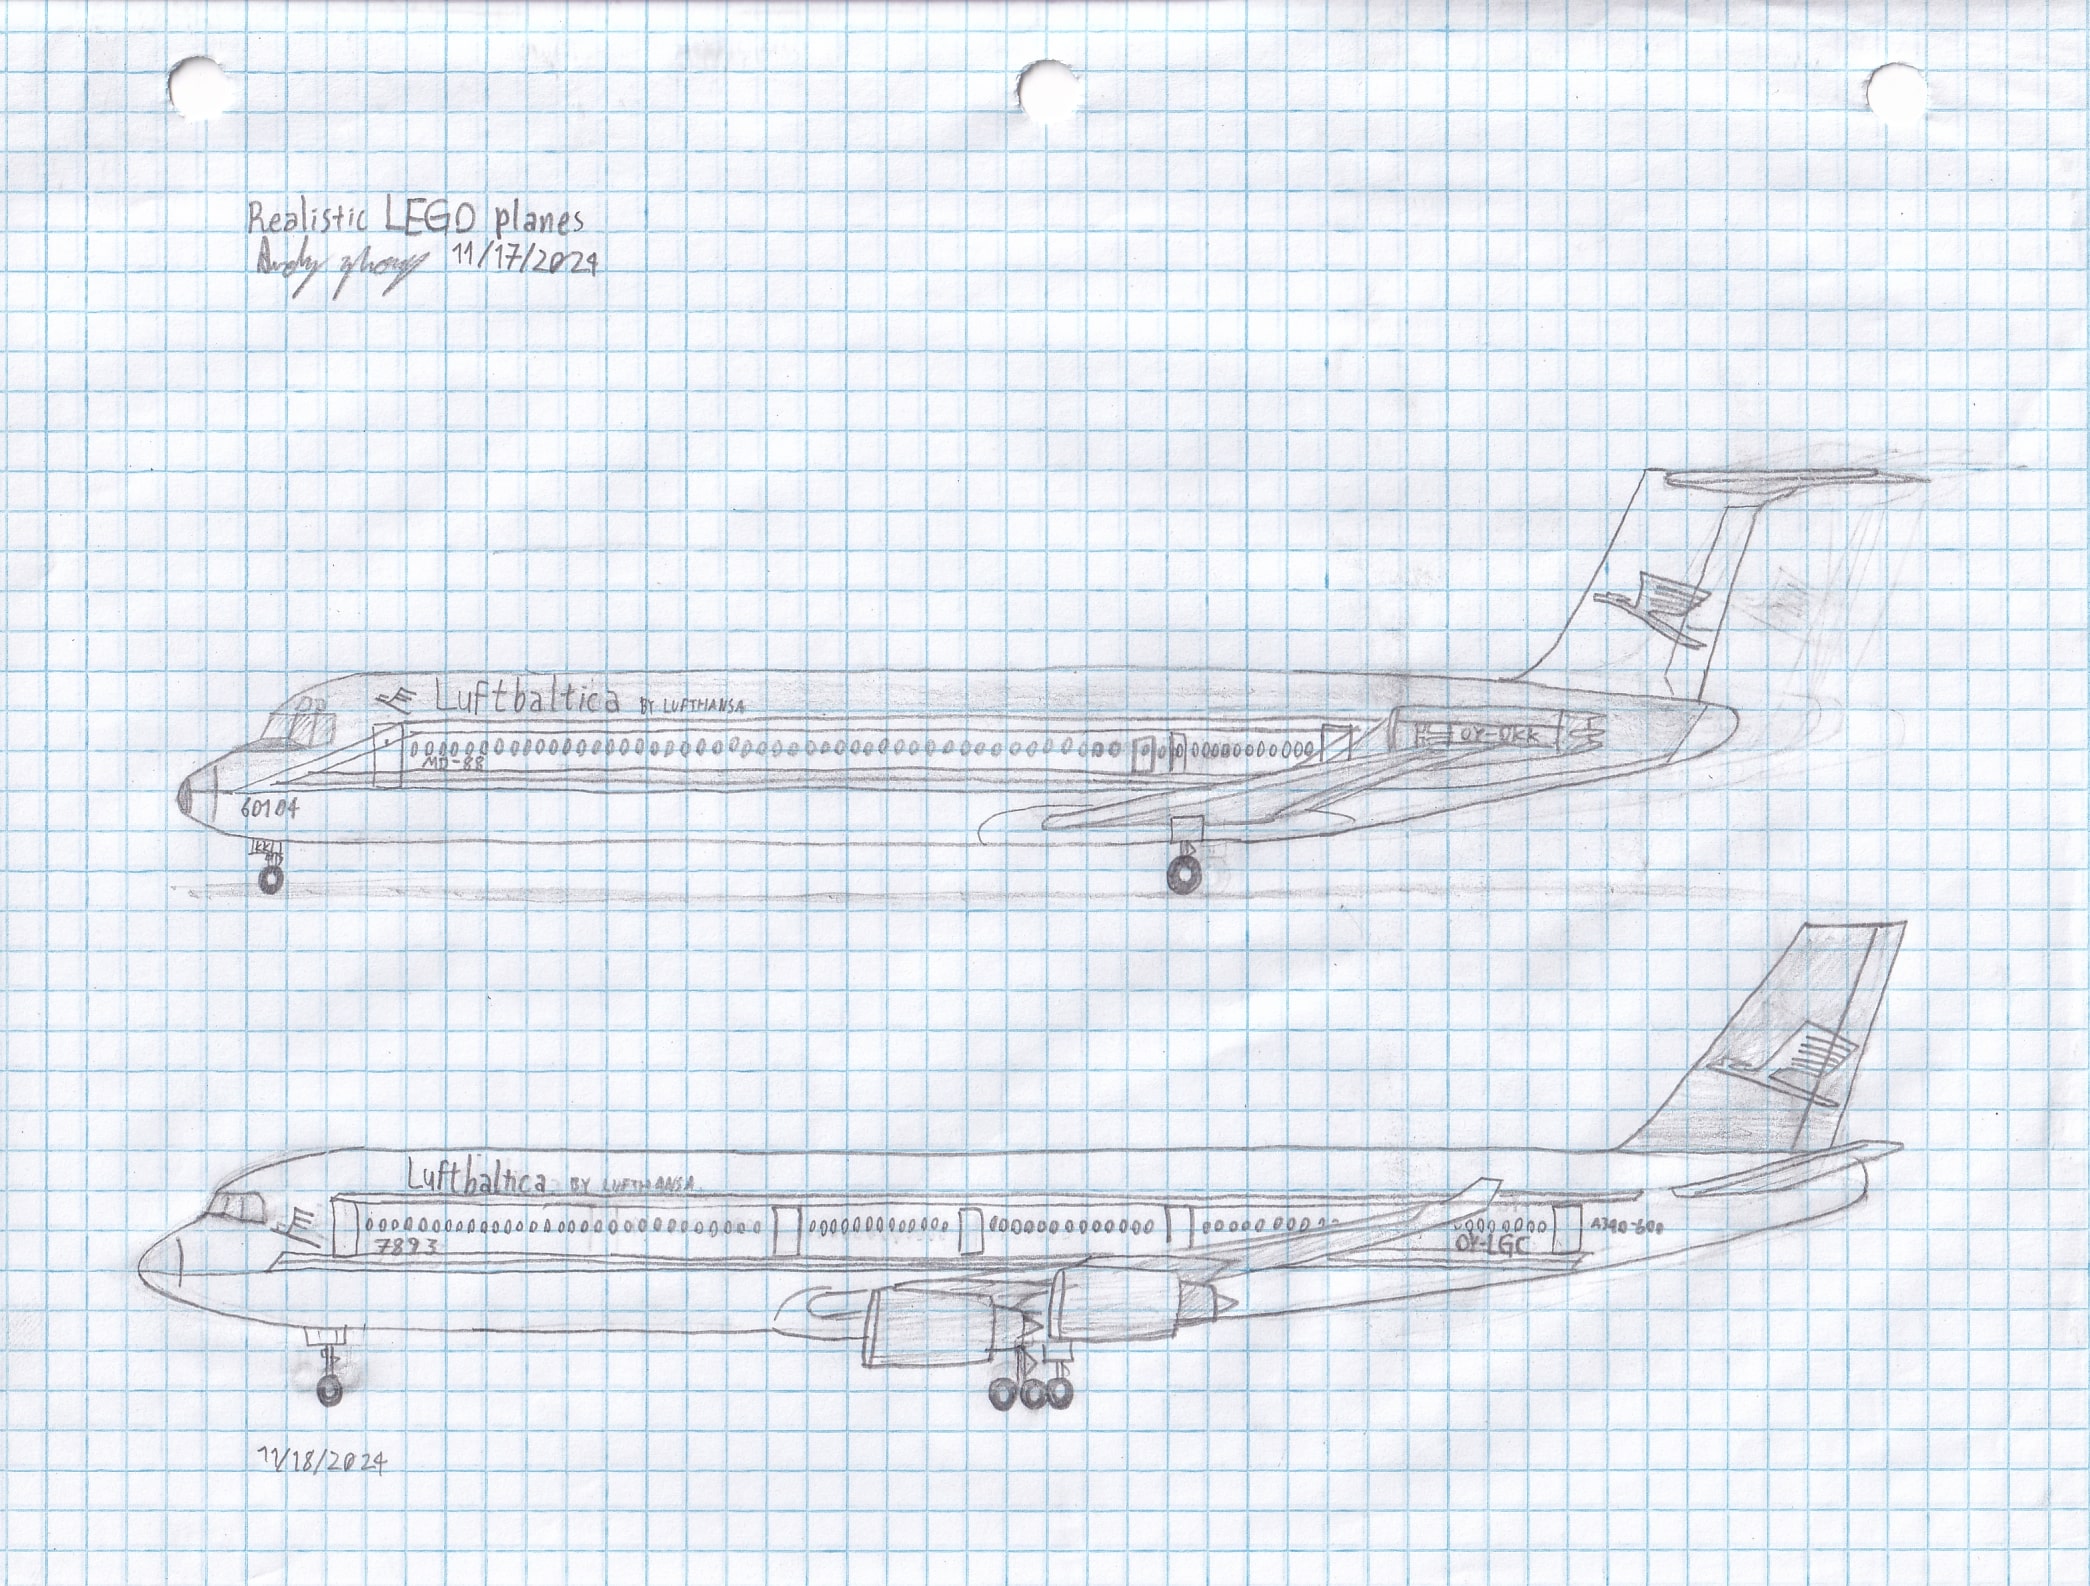 Realistic LEGO planes
Andy Zhong 11/17/2024
Luftbaltica BY LUFTHANSA
MD-88
OY-QKK
60104
KK
Luftbaltica BY LUFTHANSA
7893
OY-LGC
A340-600
11/18/2024